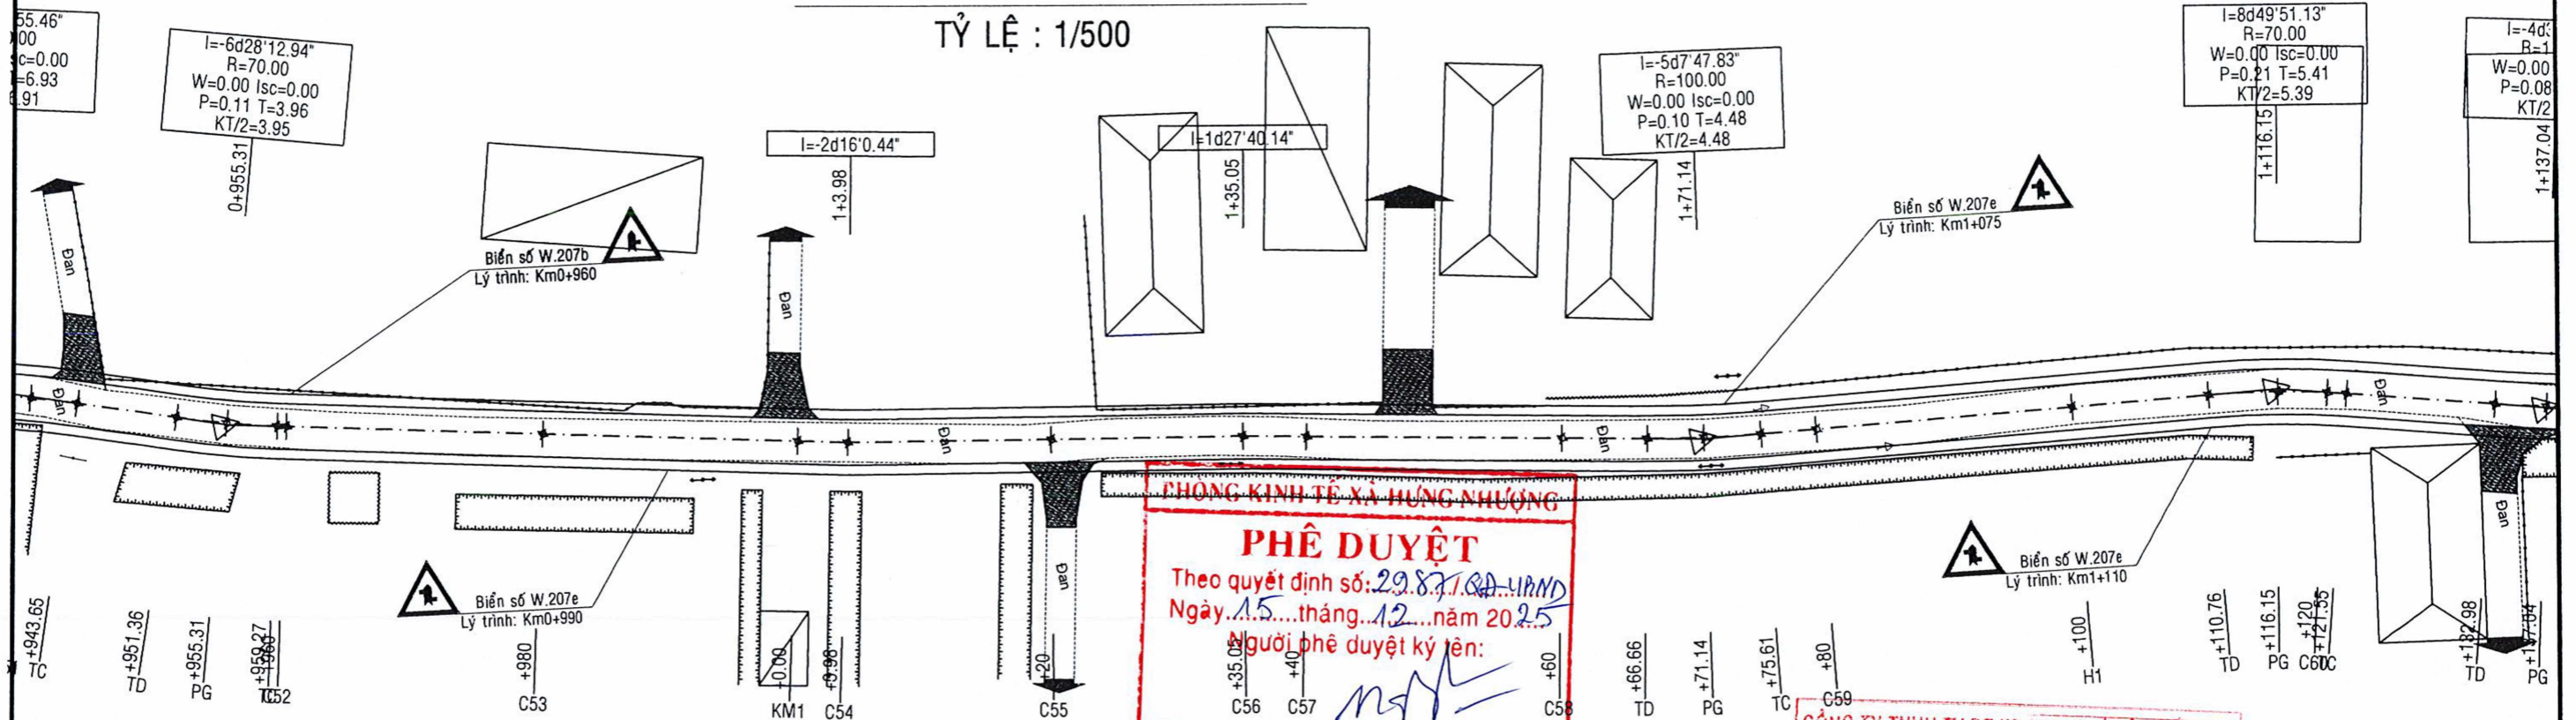 TỶ LỆ : 1/500
55.46"
00
sc=0.00
=6.93
6.91
I=-6d28'12.94"
R=70.00
W=0.00 Isc=0.00
P=0.11 T=3.96
KT/2=3.95
0+955.31
I=-2d16'0.44"
1+3.98
I=1d27'40.14"
1+35.05
I=-5d7'47.83"
R=100.00
W=0.00 Isc=0.00
P=0.10 T=4.48
KT/2=4.48
1+71.14
I=8d49'51.13"
R=70.00
W=0.00 Isc=0.00
P=0.21 T=5.41
KT/2=5.39
1+116.15
I=-4d
R=1
W=0.00
P=0.08
KT/2
1+137.04
Biển số W.207b
Lý trình: Km0+960
Biển số W.207e
Lý trình: Km1+075
Đan
Đan
Đan
Đan
Đan
Đan
Đan
Đan
Biển số W.207e
Lý trình: Km0+990
Biển số W.207e
Lý trình: Km1+110
PHÒNG KINH TẾ XÃ HƯNG NHƯỢNG
PHÊ DUYỆT
Theo quyết định số: 2987/QĐ-UBND
Ngày 15 tháng 12 năm 2025
Người phê duyệt ký tên:
+943.65
TC
+951.36
TD
+955.31
PG
+959.27
TC
+960
C52
+980
C53
+0.00
KM1
+3.98
C54
+20
C55
+35.05
C56
+40
C57
+60
C58
+66.66
TD
+71.14
PG
+75.61
TC
+80
C59
+100
H1
+110.76
TD
+116.15
PG
+120
C60
+121.55
TC
+132.98
TD
+137.04
PG